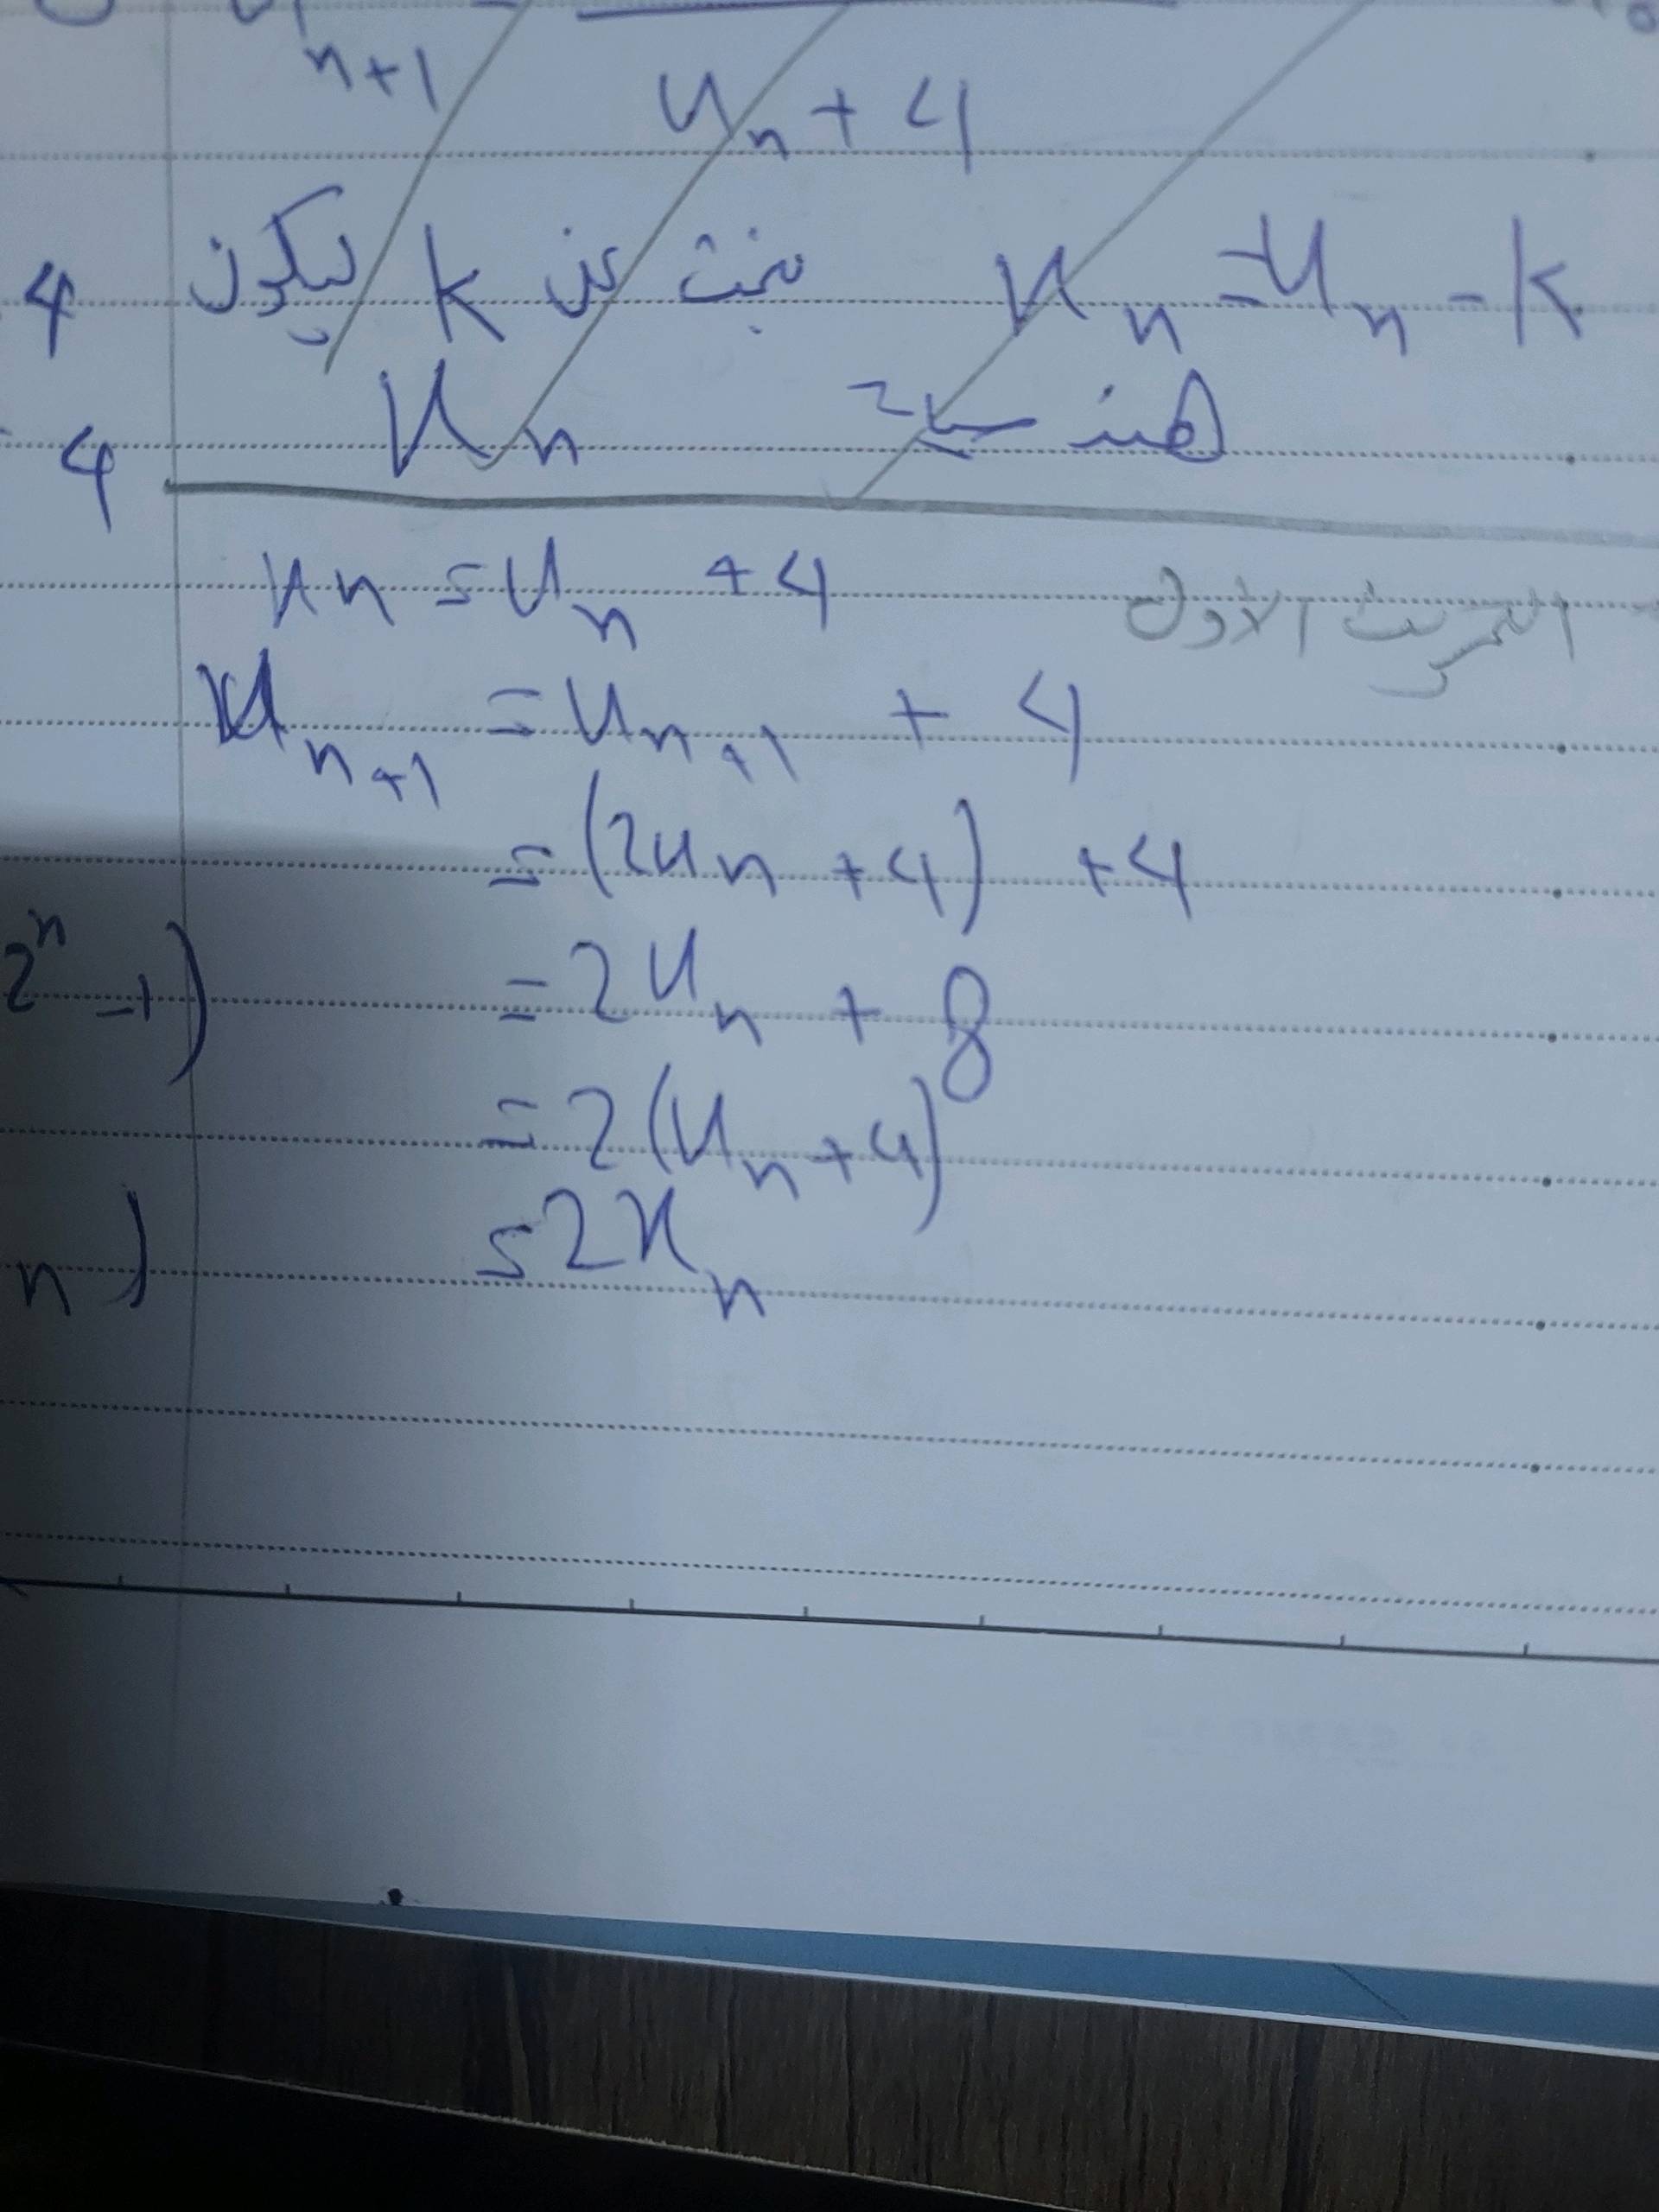 n+1
u_n + 4
4 ليكون k نبحث عن x_n = u_n - k
4 x_n هندسية
x_n = u_n + 4 التمرين الأول
x_{n+1} = u_{n+1} + 4
= (2u_n + 4) + 4
2^n - 1) = 2u_n + 8
= 2(u_n + 4)
n) = 2x_n